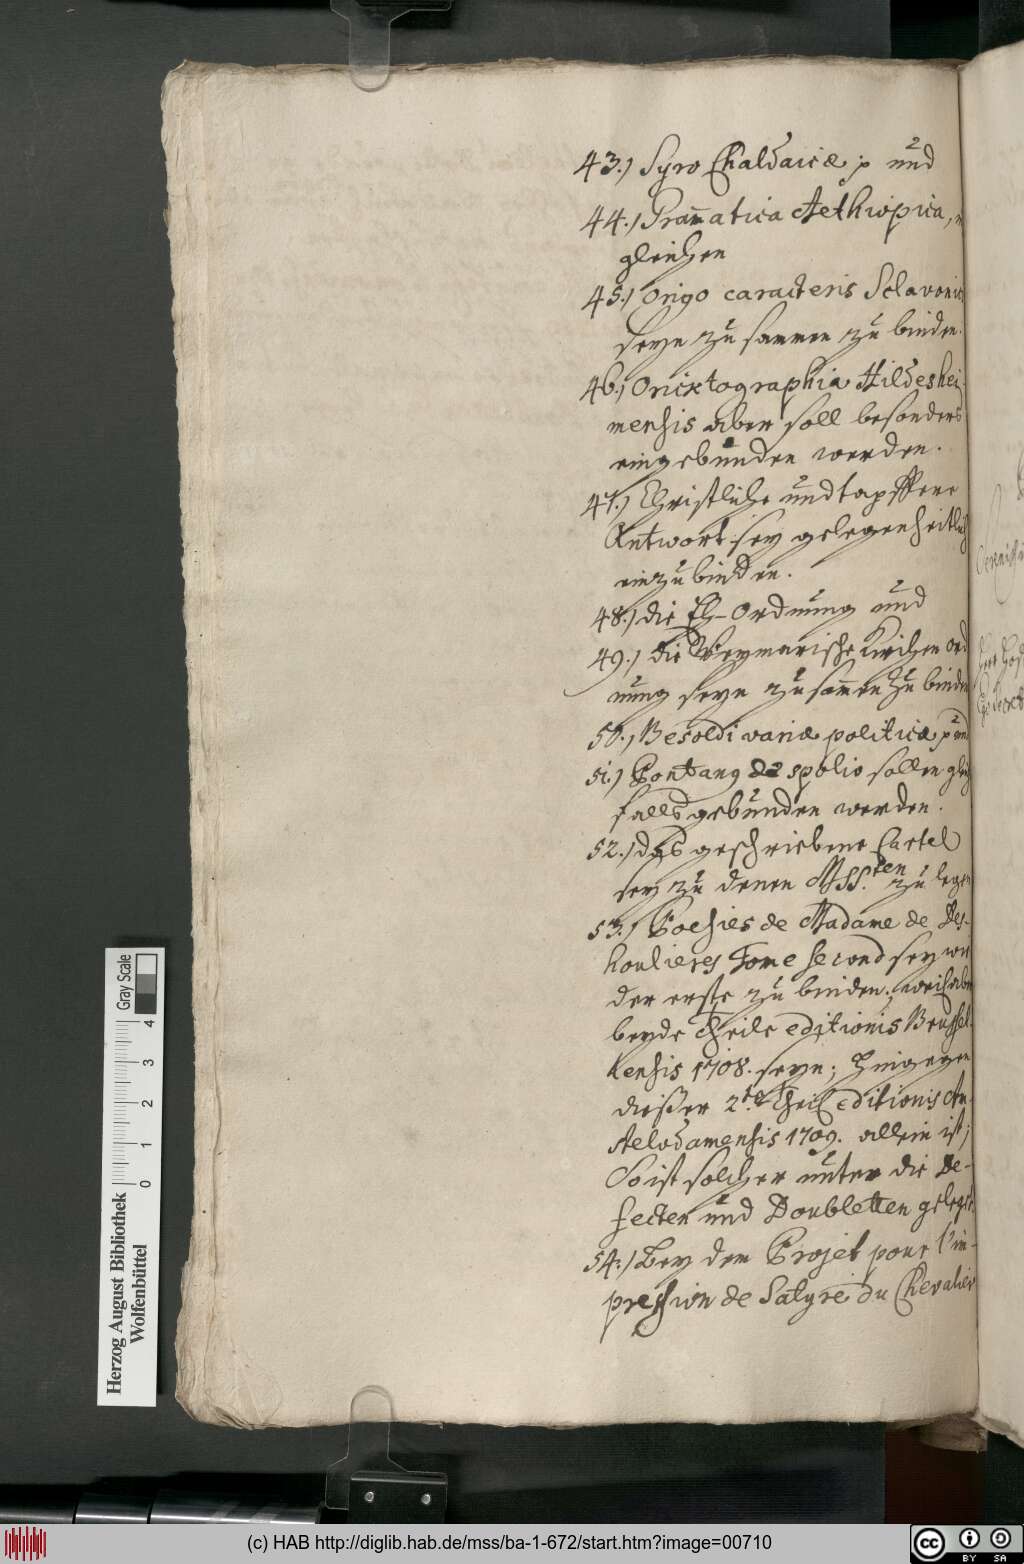 43.) Syro Chaldaicæ p und
44.) Gram̄atica Aethiopica,
gleichen
45.) Origo caracteris Sclavonic
seyn zu sammen zu binden.
46.) Oricktographia Hildeshei-
mensis aber soll besonders
eingebunden werden.
47.) Christliche und tapffere
Antwort sey gelegenheitlich
einzubinden.
48.) die Eh-Ordnung und
49.) die Weymarische Kirchen ord
nung seyn zusam̄en zu binden
50.) Besoldi variæ politicæ p und
51.) Pontang de spolio sollen gleich
falls gebunden werden.
52.) das geschriebene Cartel
sey zu denen MSS.ten zu legen
53.) Poesies de Madame de Des-
houlieres Tome second sey wie
der erste zu binden; weil aber
beyde Theile editionis Brussel-
lensis 1708. seyn; hingegen
dießer 2te Theil editionis Am-
stelodamensis 1709. allein ist;
So ist solcher unter die De-
fecten und Doubletten gelegt.
54.) Bey dem Projet pour l'im-
pression de Satyre du Chevalier
Herzog August Bibliothek
Wolfenbüttel
Gray Scale
0 1 2 3 4
(c) HAB http://diglib.hab.de/mss/ba-1-672/start.htm?image=00710
cc BY SA